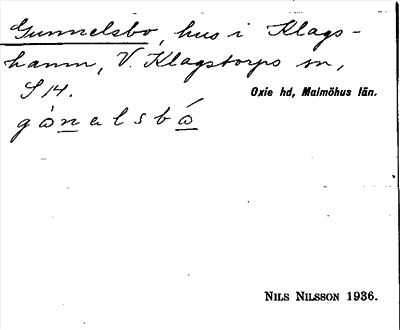 Gunnelsbo, hus i Klags-
hamn, V. Klagstorps sn,
S 14.
Oxie hd, Malmöhus län.
gònalsbó
NILS NILSSON 1936.